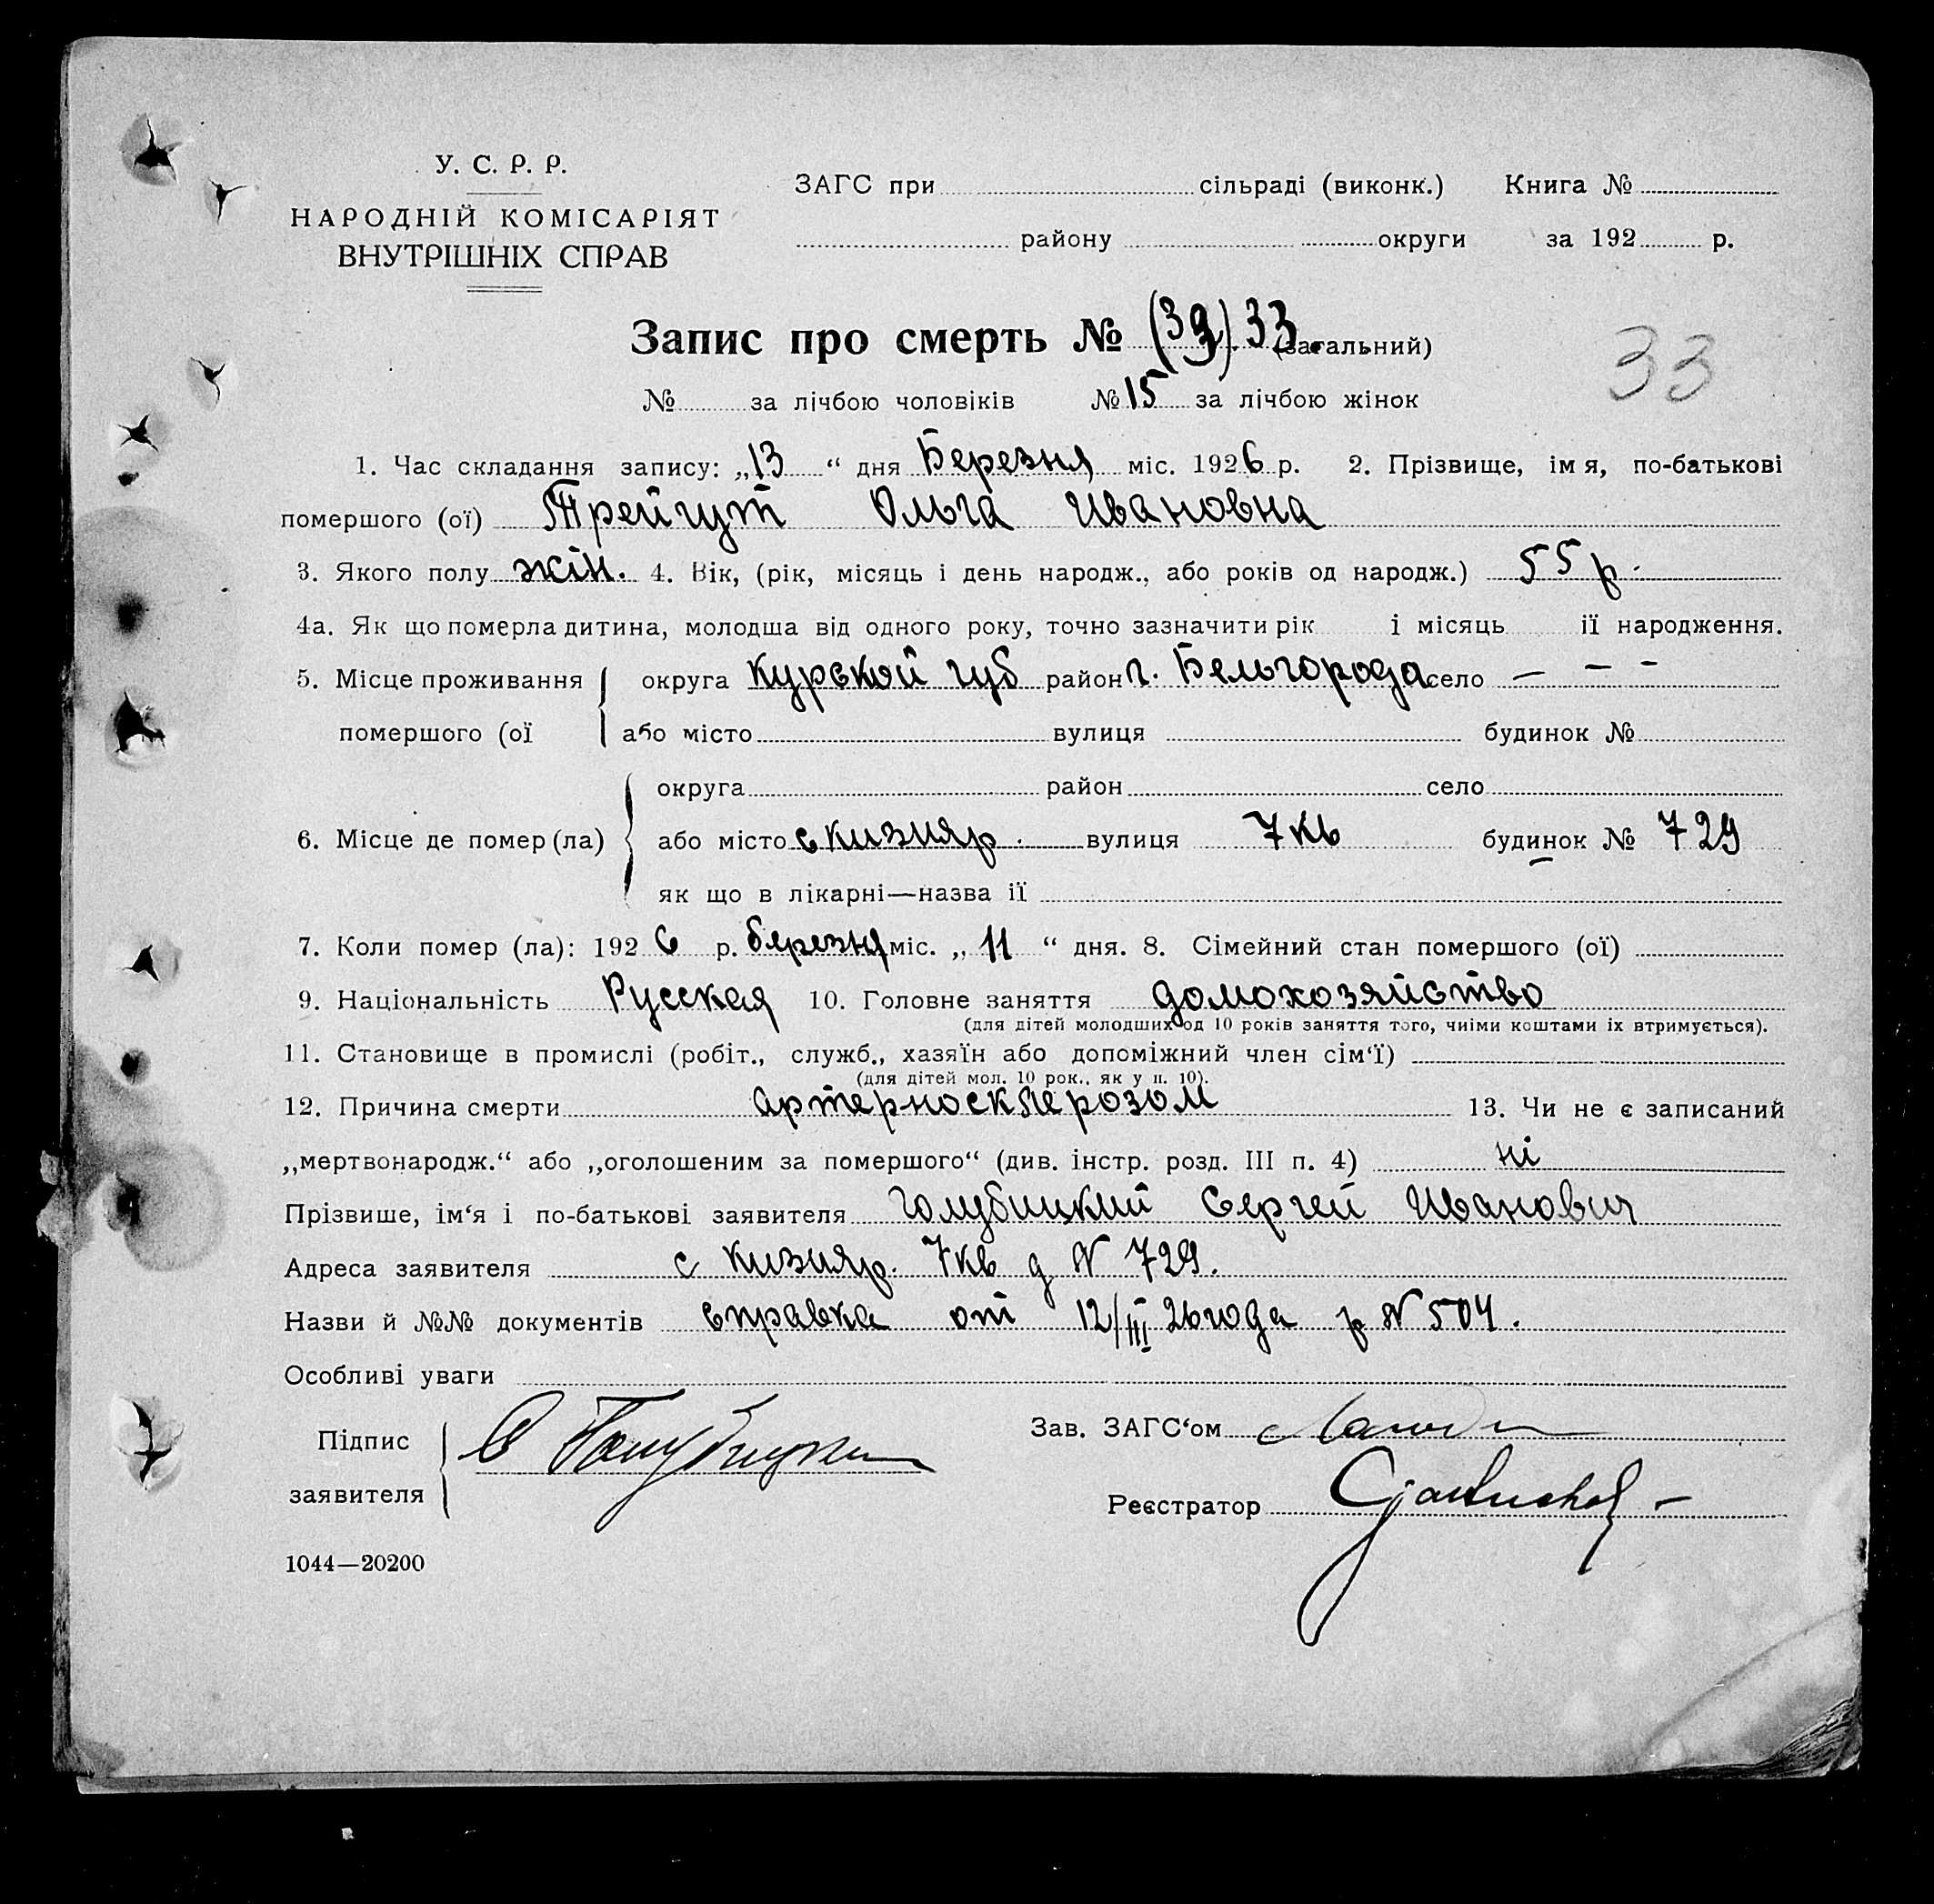 У. С. Р. Р.
НАРОДНІЙ КОМІСАРІЯТ
ВНУТРІШНІХ СПРАВ
ЗАГС при сільраді (виконк.) Книга №
району округи за 192 р.
Запис про смерть № (39) 33. (загальний)
33
№ за лічбою чоловіків № 15 за лічбою жінок
1. Час складання запису: „13“ дня Березня міс. 1926 р. 2. Прізвище, імя, по-батькові
помершого (ої) Трейгут Ольга Ивановна
3. Якого полу жін. 4. Вік, (рік, місяць і день народж., або років од народж.) 55 р.
4а. Як що померла дитина, молодша від одного року, точно зазначити рік і місяць її народження.
5. Місце проживання округа Курской губ район г. Бельгорода село — — -
помершого (ої або місто вулиця будинок №
округа район село
6. Місце де помер (ла) або місто с Кизияр. вулиця 7 кв будинок № 729
як що в лікарні—назва її
7. Коли помер (ла): 1926 р. березня міс. „11“ дня. 8. Сімейний стан помершого (ої)
9. Національність Русская 10. Головне заняття домохозяйство
(для дітей молодших од 10 років заняття того, чиїми коштами їх втримується).
11. Становище в промислі (робіт., служб., хазяїн або допоміжний член сім‘ї)
(для дітей мол. 10 рок., як у п. 10).
12. Причина смерти артерносклерозом 13. Чи не є записаний
„мертвонародж.“ або „оголошеним за помершого“ (див. інстр. розд. III п. 4) ні
Прізвише, ім‘я і по-батькові заявителя Голубицкий Сергей Иванович
Адреса заявителя с Кизияр. 7кв д N 729.
Назви й №№ документів справка от 12/III 26 года р N 504.
Особливі уваги
Підпис заявителя С Голубицкий
Зав. ЗАГС‘ом
Реєстратор
1044—20200